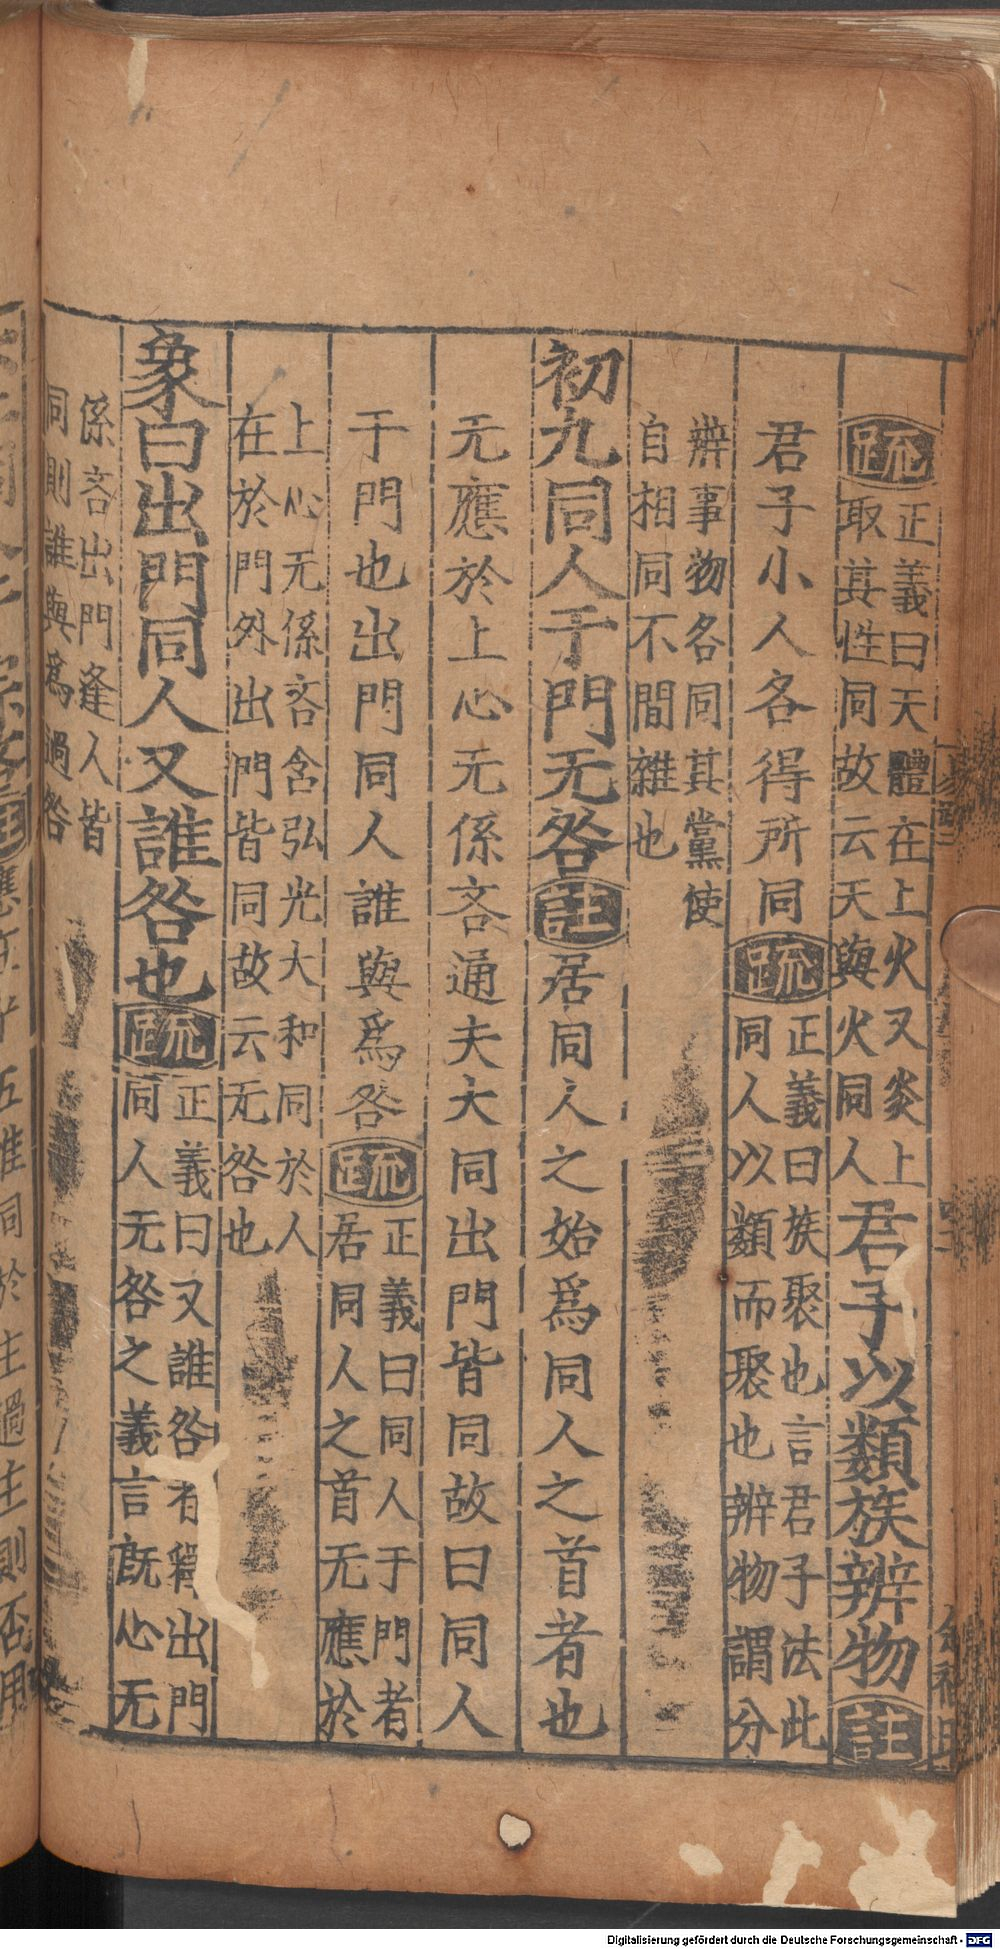 疏 正義曰天體在上火又炎上
取其性同故云天與火同人 君子以類族辨物 註
君子小人各得所同 疏 正義曰族聚也言君子法此
同人以類而聚也辨物謂分
辨事物各同其黨使
自相同不間雜也
初九同人于門无咎 註 居同人之始爲同人之首者也
无應於上心无係吝通夫大同出門皆同故曰同人
于門也出門同人誰與爲咎 疏 正義曰同人于門者
居同人之首无應於
上心无係吝含弘光大和同於人
在於門外出門皆同故云无咎也
象曰出門同人又誰咎也 疏 正義曰又誰咎者釋出門
同人无咎之義言既心无
係吝出門逢人皆
同則誰與爲過咎
Digitalisierung gefördert durch die Deutsche Forschungsgemeinschaft - DFG